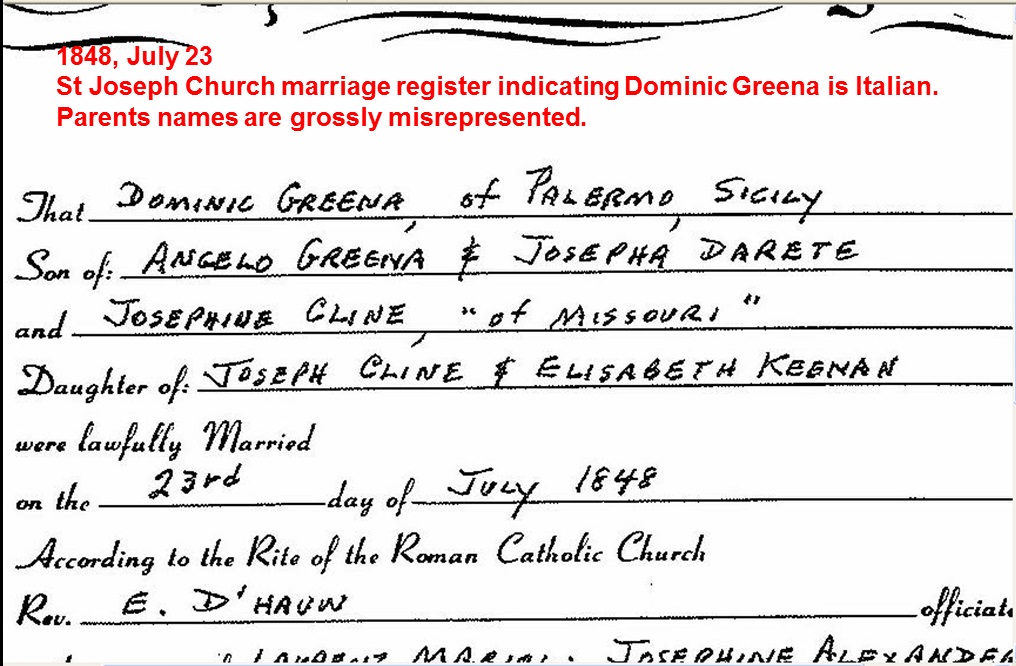 1848, July 23
St Joseph Church marriage register indicating Dominic Greena is Italian.
Parents names are grossly misrepresented.
That DOMINIC GREENA, of PALERMO, SICILY
Son of: ANGELO GREENA & JOSEPHA DARETE
and JOSEPHINE CLINE, "of MISSOURI"
Daughter of: JOSEPH CLINE & ELISABETH KEENAN
were lawfully Married
on the 23rd day of JULY 1848
According to the Rite of the Roman Catholic Church
Rev. E. D'HAUW officiati
JOSEPHINE ALEXANDER